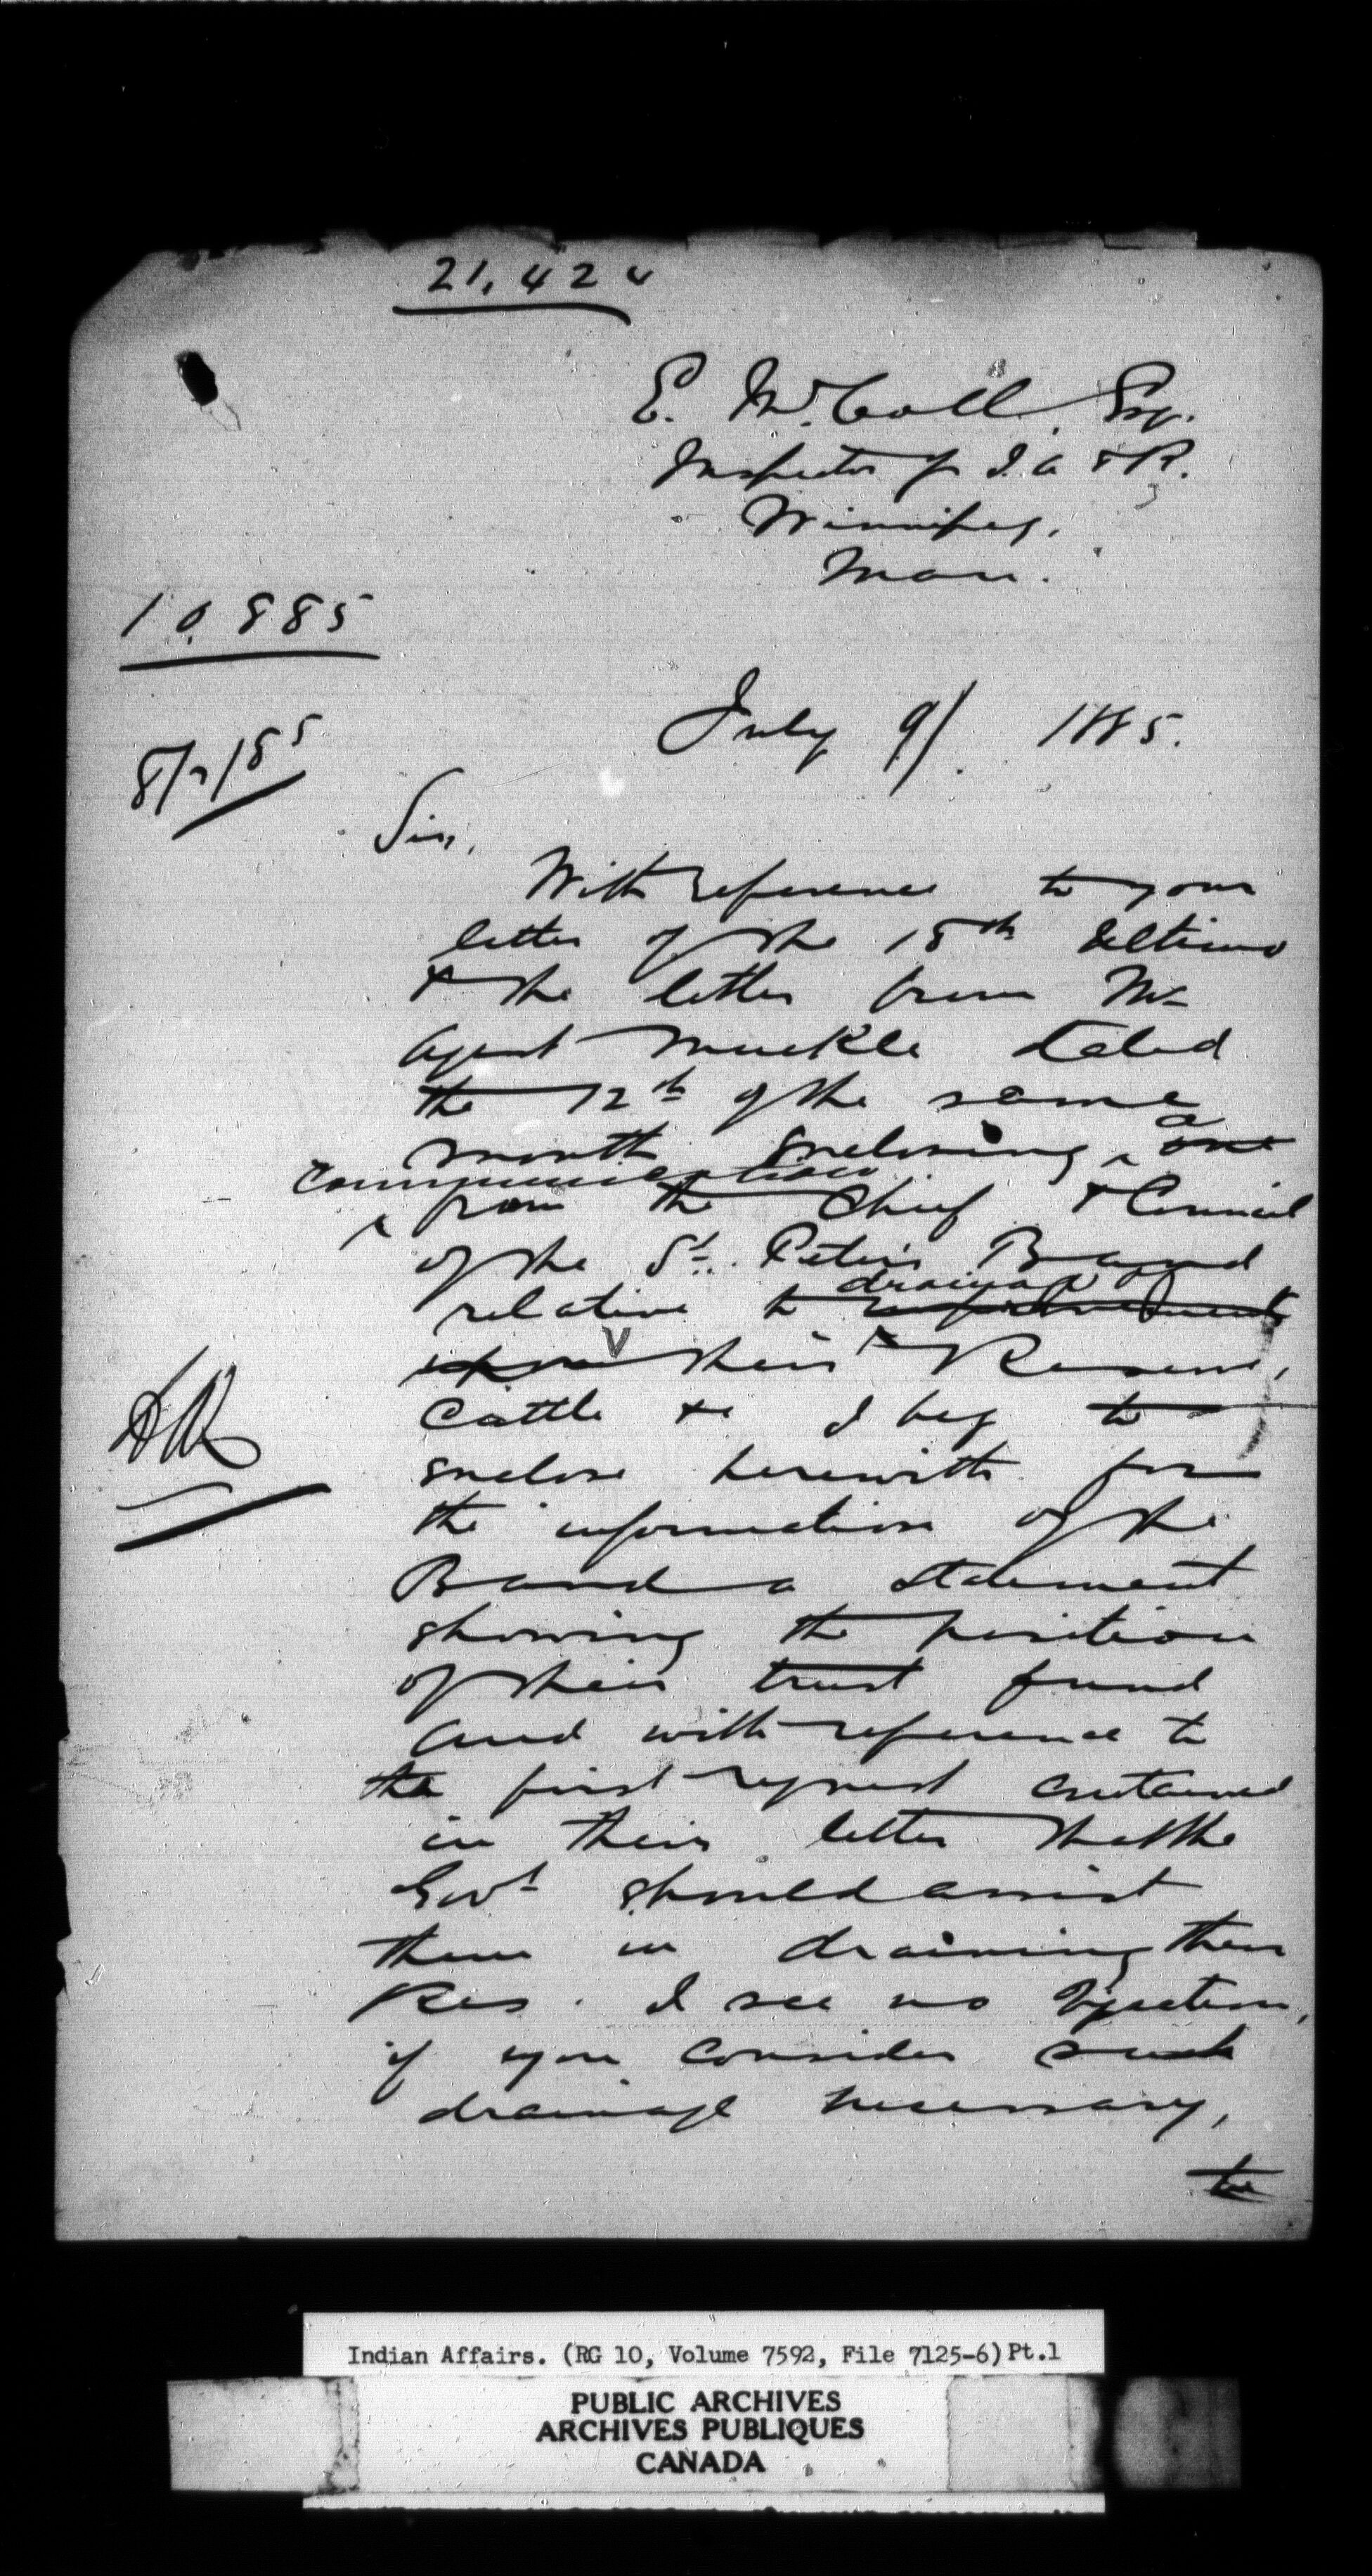 21,424
E. McColl, Esq.
Inspector of I. A & R.
Winnipeg,
Man.
10,885
July 9/ 1885.
8/7/85
Sir,
With reference to your
letter of the 15th Ultimo
& the letter from Mr
Agent Muckle dated
the 12th of the same
month enclosing a one
communication
from the Chief & Council
of the St. Peter's Band
drainage
relative to improvements
upon their Reserve,
Cattle &c I beg to
enclose herewith for
the information of the
Band a statement
showing the position
of their trust fund
and with reference to
the first request contained
in their letter that the
Govt should assist
them in draining their
Res. I see no objection,
if you consider such
drainage necessary,
to
Indian Affairs. (RG 10, Volume 7592, File 7125-6) Pt.1
PUBLIC ARCHIVES
ARCHIVES PUBLIQUES
CANADA